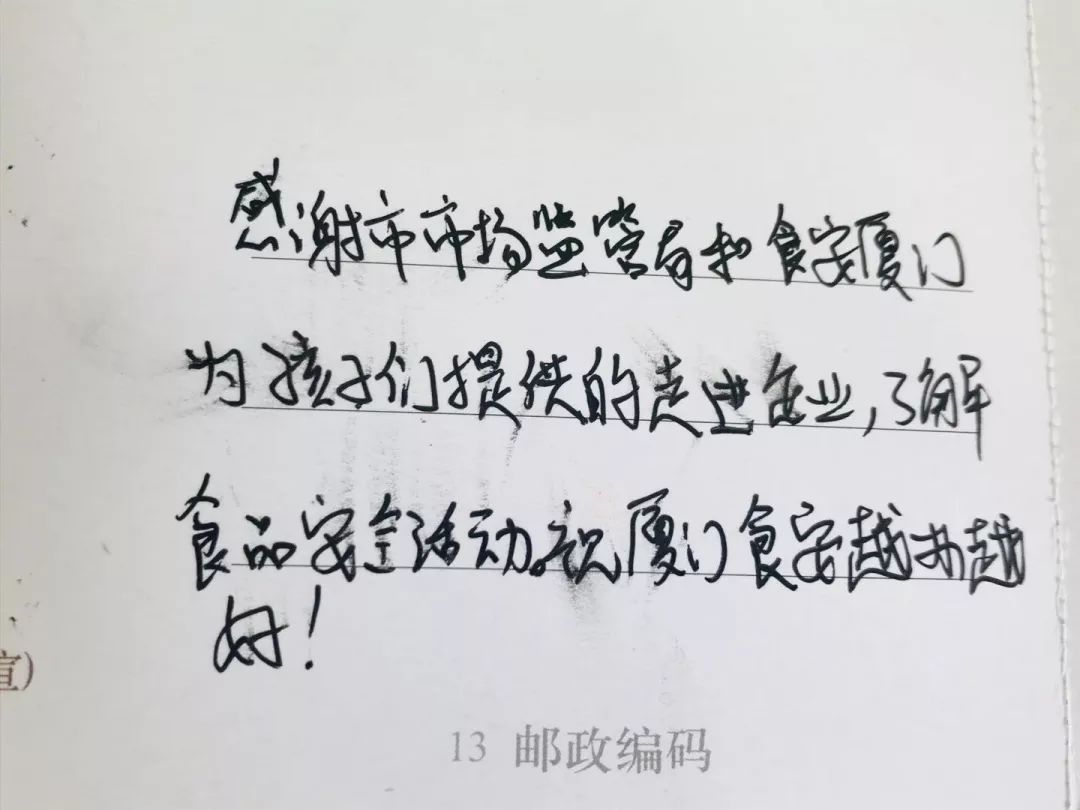 感谢市市场监管局和食安厦门
为孩子们提供的走进企业,了解
食品安全活动。祝厦门食安越来越
好!
宣)
13 邮政编码